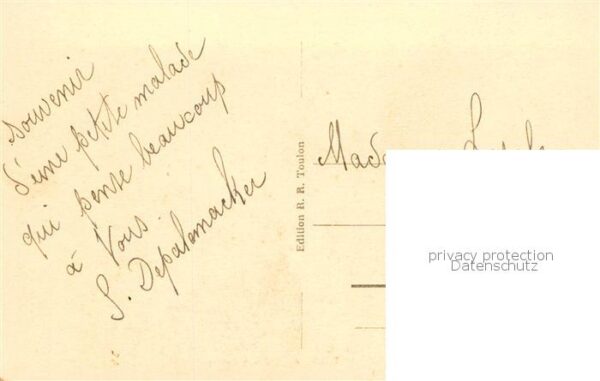 souvenir
d'une petite malade
qui pense beaucoup
à Vous.
S. Depalemacker
Edition R. R. Toulon
privacy protection
Datenschutz